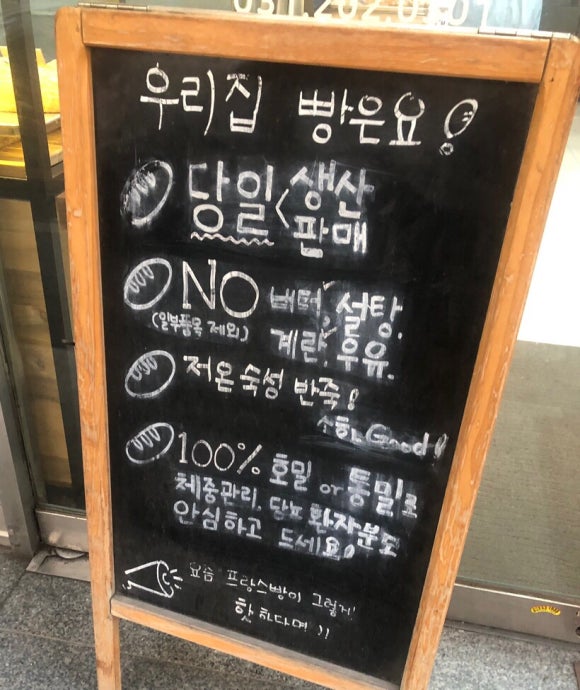 031.202.0101
우리집 빵은요!
당일< 생산
판매
NO 버터, 설탕,
(일부품목 제외) 계란, 우유.
저온 숙성 반죽!
Good!
100% 호밀 or 통밀로
체중관리, 당뇨 환자분도
안심하고 드세요.
요즘 프랑스빵이 그렇게
핫 하다며!!